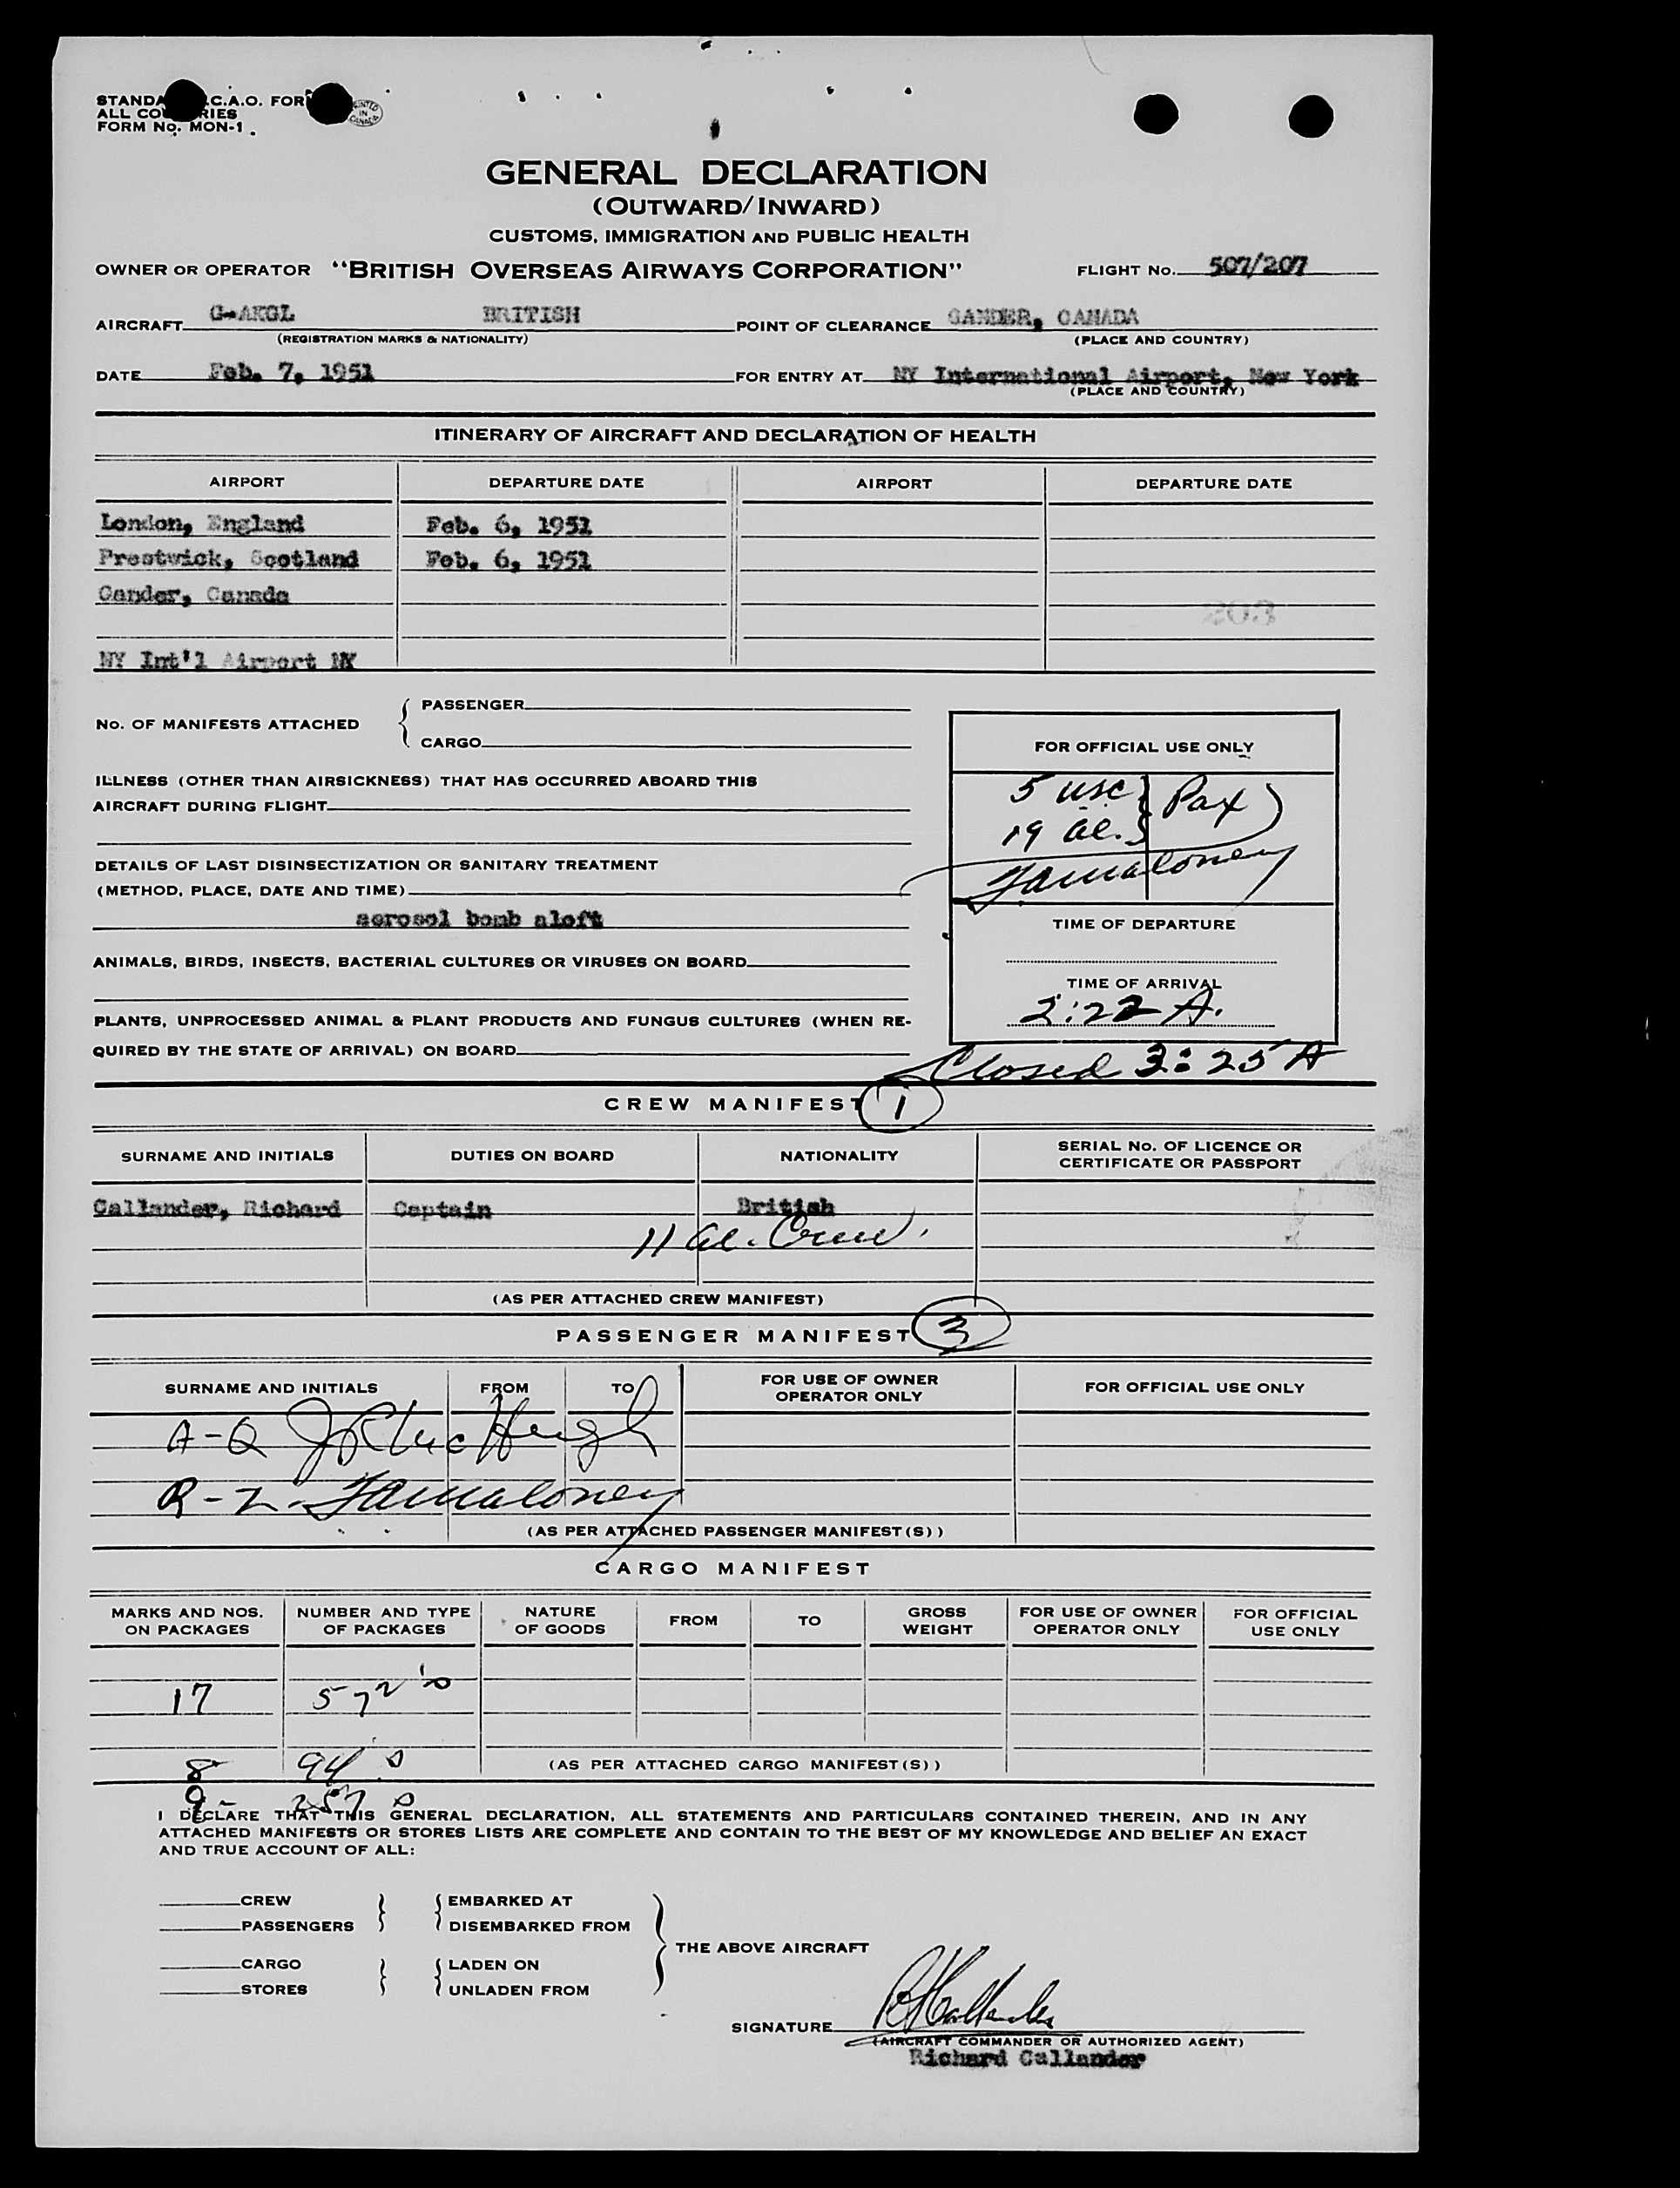 STANDA .C.A.O. FOR
ALL CO RIES
FORM No. MON-1
PRINTED IN CANADA
GENERAL DECLARATION
(OUTWARD/INWARD)
CUSTOMS, IMMIGRATION AND PUBLIC HEALTH
OWNER OR OPERATOR "BRITISH OVERSEAS AIRWAYS CORPORATION" FLIGHT No. 507/207
AIRCRAFT G-AKGL BRITISH POINT OF CLEARANCE GANDER, CANADA
(REGISTRATION MARKS & NATIONALITY) (PLACE AND COUNTRY)
DATE Feb. 7, 1951 FOR ENTRY AT NY International Airport, New York
(PLACE AND COUNTRY)
ITINERARY OF AIRCRAFT AND DECLARATION OF HEALTH
AIRPORT DEPARTURE DATE AIRPORT DEPARTURE DATE
London, England Feb. 6, 1951
Prestwick, Scotland Feb. 6, 1951
Gander, Canada
NY Int'l Airport NY
No. OF MANIFESTS ATTACHED { PASSENGER
CARGO
FOR OFFICIAL USE ONLY
5 usc } Pax
19 al.
ILLNESS (OTHER THAN AIRSICKNESS) THAT HAS OCCURRED ABOARD THIS
AIRCRAFT DURING FLIGHT
DETAILS OF LAST DISINSECTIZATION OR SANITARY TREATMENT
(METHOD, PLACE, DATE AND TIME)
aerosol bomb aloft
TIME OF DEPARTURE
ANIMALS, BIRDS, INSECTS, BACTERIAL CULTURES OR VIRUSES ON BOARD
TIME OF ARRIVAL
2:22 A.
PLANTS, UNPROCESSED ANIMAL & PLANT PRODUCTS AND FUNGUS CULTURES (WHEN RE-
QUIRED BY THE STATE OF ARRIVAL) ON BOARD
Closed 3:25 A
CREW MANIFEST 1
SURNAME AND INITIALS DUTIES ON BOARD NATIONALITY SERIAL No. OF LICENCE OR CERTIFICATE OR PASSPORT
Callander, Richard Captain British
11 al. Crew.
(AS PER ATTACHED CREW MANIFEST)
PASSENGER MANIFEST 3
SURNAME AND INITIALS FROM TO FOR USE OF OWNER OPERATOR ONLY FOR OFFICIAL USE ONLY
A-Q
R-Z
(AS PER ATTACHED PASSENGER MANIFEST(S))
CARGO MANIFEST
MARKS AND NOS. ON PACKAGES NUMBER AND TYPE OF PACKAGES NATURE OF GOODS FROM TO GROSS WEIGHT FOR USE OF OWNER OPERATOR ONLY FOR OFFICIAL USE ONLY
17 572
8 94 (AS PER ATTACHED CARGO MANIFEST(S))
9 257
I DECLARE THAT THIS GENERAL DECLARATION, ALL STATEMENTS AND PARTICULARS CONTAINED THEREIN, AND IN ANY
ATTACHED MANIFESTS OR STORES LISTS ARE COMPLETE AND CONTAIN TO THE BEST OF MY KNOWLEDGE AND BELIEF AN EXACT
AND TRUE ACCOUNT OF ALL:
CREW EMBARKED AT
PASSENGERS DISEMBARKED FROM
THE ABOVE AIRCRAFT
CARGO LADEN ON
STORES UNLADEN FROM
SIGNATURE RHCallander
(AIRCRAFT COMMANDER OR AUTHORIZED AGENT)
Richard Callander